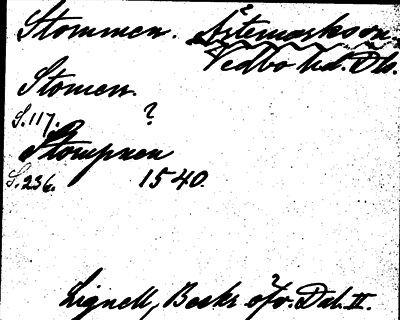 Stommen. Ärtemarks sn.
Vedbo hd. Dls.
Stomen.
S. 117. ?
Stompnen
S. 236. 1540.
Lignell, Beskr. öfv. Dal. II.